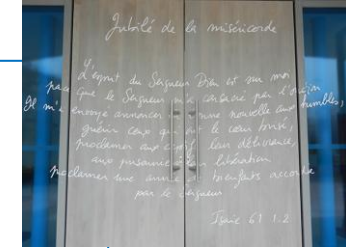 Jubilé de la miséricorde
L'esprit du Seigneur Dieu est sur moi
parce que le Seigneur m'a consacré par l'onction
Il m'a envoyé annoncer la bonne nouvelle aux humbles,
guérir ceux qui ont le cœur brisé,
proclamer aux captifs leur délivrance,
aux prisonniers leur libération
proclamer une année de bienfaits accordée
par le Seigneur
Isaïe 61 1.2